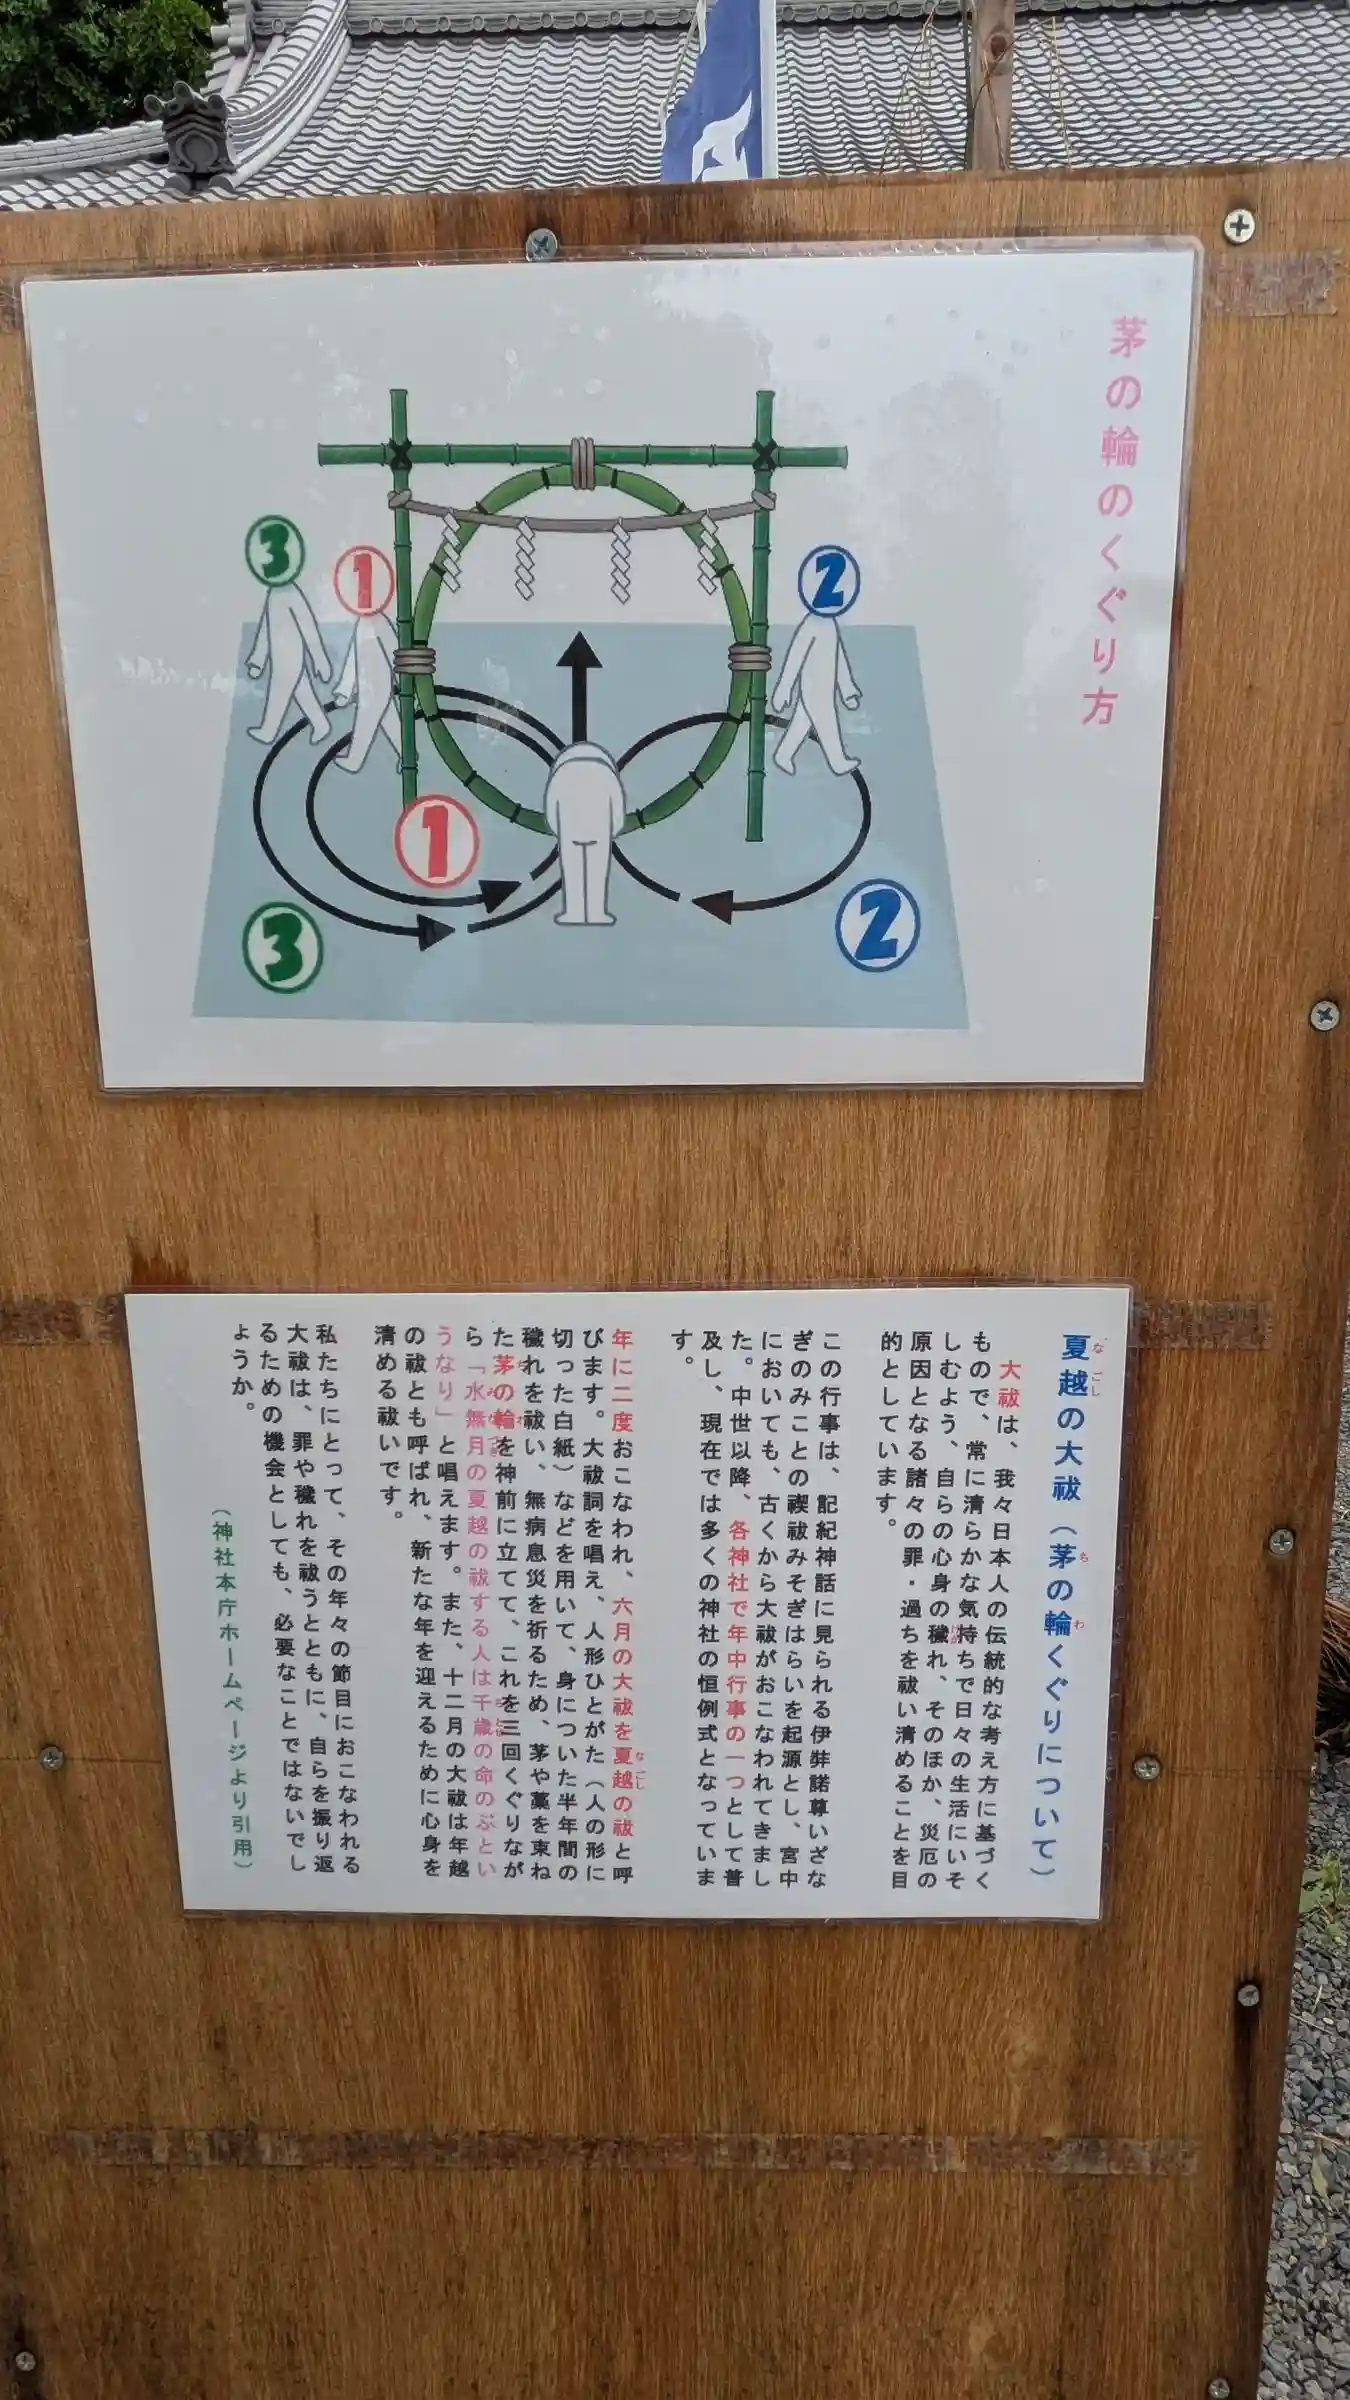 茅の輪のくぐり方
3
1
2
1
3
2
夏越の大祓（茅の輪くぐりについて）
なごし
ち
わ
大祓は、我々日本人の伝統的な考え方に基づく
もので、常に清らかな気持ちで日々の生活にいそ
しむよう、自らの心身の穢れ、そのほか、災厄の
原因となる諸々の罪・過ちを祓い清めることを目
的としています。
この行事は、記紀神話に見られる伊弉諾尊いざな
ぎのみことの禊祓みそぎはらいを起源とし、宮中
においても、古くから大祓がおこなわれてきまし
た。中世以降、各神社で年中行事の一つとして普
及し、現在では多くの神社の恒例式となっていま
す。
年に二度おこなわれ、六月の大祓を夏越の祓と呼
なごし
びます。大祓詞を唱え、人形ひとがた（人の形に
切った白紙）などを用いて、身についた半年間の
穢れを祓い、無病息災を祈るため、茅や藁を束ね
た茅の輪を神前に立てて、これを三回くぐりなが
ら「水無月の夏越の祓する人は千歳の命のぶとい
うなり」と唱えます。また、十二月の大祓は年越
の祓とも呼ばれ、新たな年を迎えるために心身を
清める祓いです。
私たちにとって、その年々の節目におこなわれる
大祓は、罪や穢れを祓うとともに、自らを振り返
るための機会としても、必要なことではないでし
ょうか。
（神社本庁ホームページより引用）